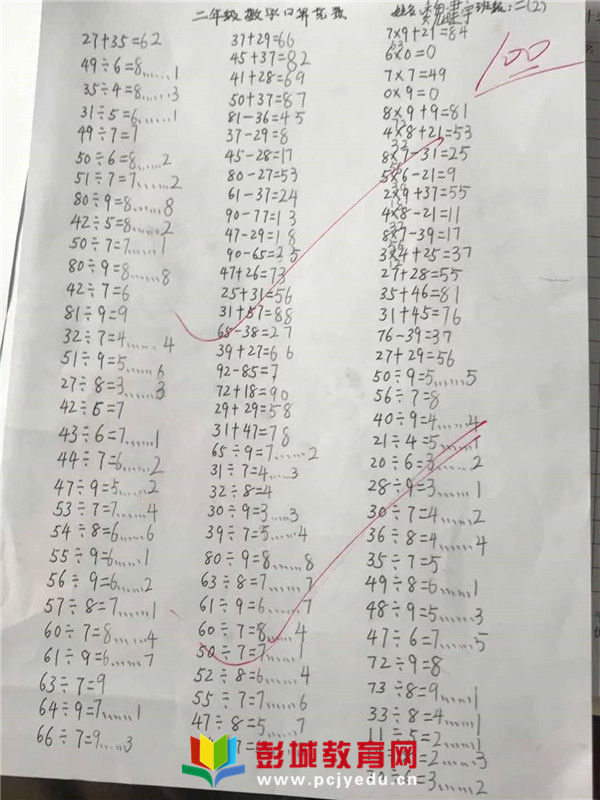 二年级数学口算竞赛
姓名: 班级:二(2)
100
27+35=62
49÷6=8......1
35÷4=8......3
31÷5=6......1
49÷7=7
50÷6=8......2
51÷7=7......2
80÷9=8......8
42÷5=8......2
50÷7=7......1
80÷9=8......8
42÷7=6
81÷9=9
32÷7=4......4
51÷9=5......6
27÷8=3......3
42÷6=7
43÷6=7......1
44÷7=6......2
47÷9=5......2
53÷7=7......4
54÷8=6......6
55÷9=6......1
56÷9=6......2
57÷8=7......1
60÷7=8......4
61÷9=6......7
63÷7=9
64÷9=7......1
66÷7=9......3
37+29=66
45+37=82
41+28=69
50+37=87
81-36=45
37-29=8
45-28=17
80-27=53
61-37=24
90-77=13
47-29=18
90-65=25
47+26=73
25+31=56
31+57=88
65-38=27
39+27=66
92-85=7
72+18=90
29+29=58
31+47=78
65÷9=7......2
31÷7=4......3
32÷8=4
30÷9=3......3
39÷7=5......4
80÷9=8......8
63÷8=7......7
61÷9=6......7
60÷7=8......4
50÷7=7......1
52÷8=6......4
55÷7=7......6
47÷8=5......7
7×9+21=84
6×0=0
7×7=49
0×9=0
8×9+9=81
4×8+21=53
8×7-31=25
5×6-21=9
2×9+37=55
4×8-21=11
8×7-39=17
3×4+25=37
27+28=55
35+46=81
31+45=76
76-39=37
27+29=56
50÷9=5......5
56÷7=8
40÷9=4......4
21÷4=5......1
20÷6=3......2
28÷9=3......1
30÷7=4......2
36÷8=4......4
35÷7=5
49÷8=6......1
48÷9=5......3
47÷6=7......5
72÷9=8
73÷8=9......1
33÷8=4......1
11÷5=2......1
=2......3
=3......2
彭城教育网
www.pcjyedu.cn